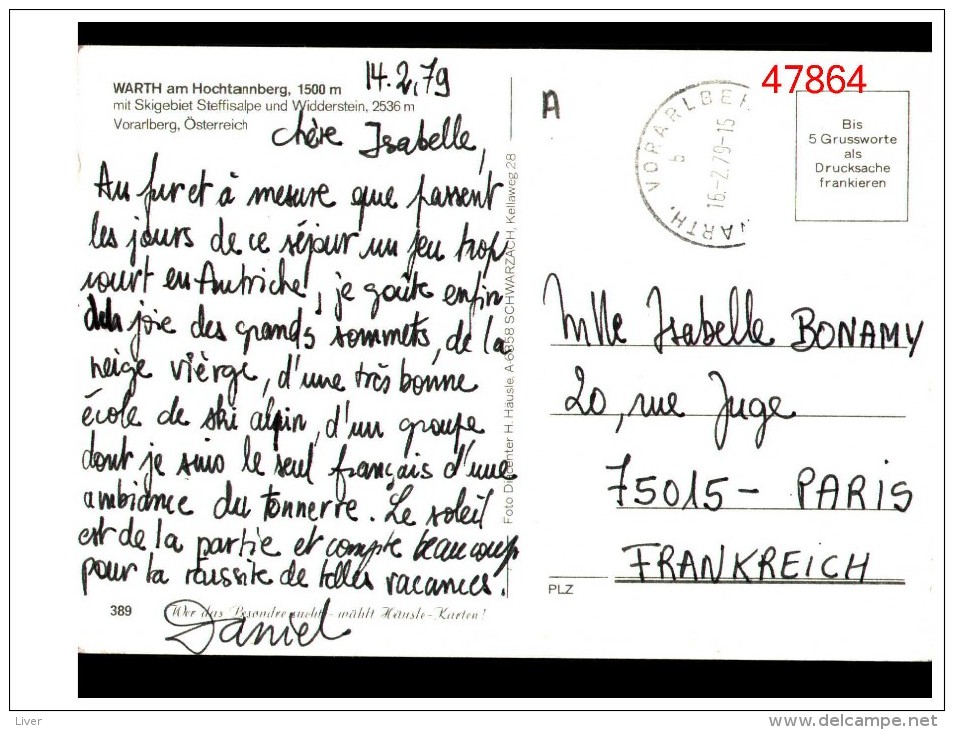 47864
WARTH am Hochtannberg, 1500 m
mit Skigebiet Steffisalpe und Widderstein, 2536 m
Vorarlberg, Österreich
14.2.79
Chère Isabelle,
Au fur et à mesure que passent
les jours de ce séjour un peu trop
court en Autriche, je goûte enfin
joie des grands sommets, de la
neige vièrge, d'une très bonne
école de ski alpin, d'un groupe
dont je suis le seul français d'une
ambiance du tonnerre. Le soleil
est de la partie et compte beaucoup
pour la réussite de telles vacances.
Daniel
389
Wer das Besondre sucht - wählt Häusle-Karten!
Foto Diacenter H. Häusle, A-6858 SCHWARZACH, Kellaweg 28
A
WARTH, VORARLBER
b
16.-2.79-15
Bis
5 Grussworte
als
Drucksache
frankieren
Mlle Isabelle BONAMY
20, rue Juge
75015 - PARIS
FRANKREICH
PLZ
Liver
www.delcampe.net